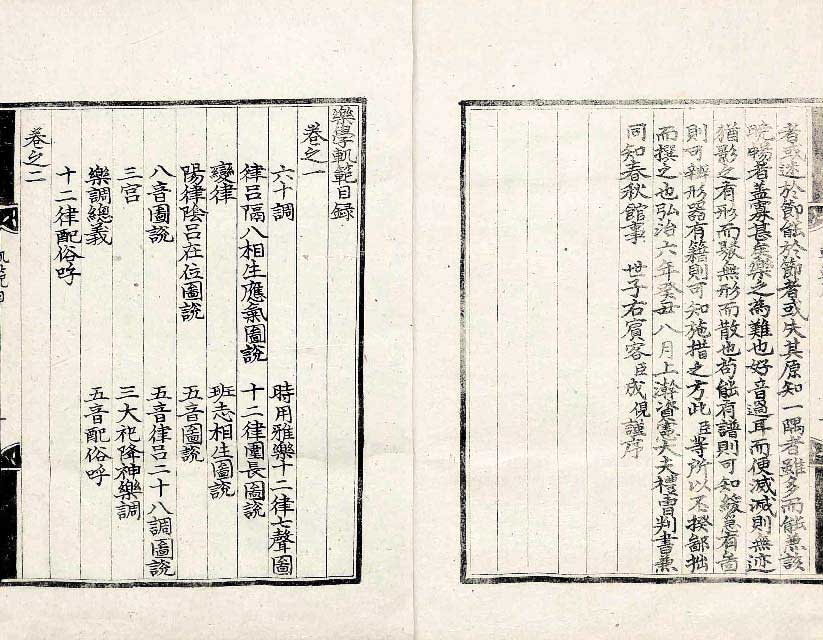 者或迷於節能於節者或失其原知一隅者雖多而能兼該
曉暢者盖寡甚矣樂之為難也好音過耳而便滅滅則無迹
猶影之有形而聚無形而散也苟能有譜則可知緩急有圖
則可辨形器有籍則可知施措之方此臣等所以不揆鄙拙
而撰之也弘治六年癸丑八月上澣資憲大夫禮曹判書兼
同知春秋館事 世子右賓客臣成俔謹序
樂學軌範目録
卷之一
六十調 時用雅樂十二律七聲圖
律呂隔八相生應氣圖說 十二律圍長圖說
變律 班志相生圖說
陽律陰呂在位圖說 五音圖說
八音圖說 五音律呂二十八調圖說
三宮 三大祀降神樂調
樂調總義 五音配俗呼
十二律配俗呼
卷之二